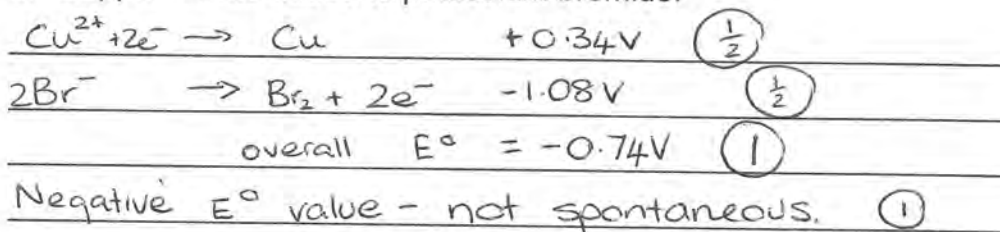 Cu²⁺+2e⁻ → Cu +0.34V (1/2)
2Br⁻ → Br₂ + 2e⁻ -1.08V (1/2)
overall E° = -0.74V (1)
Negative E° value - not spontaneous. (1)